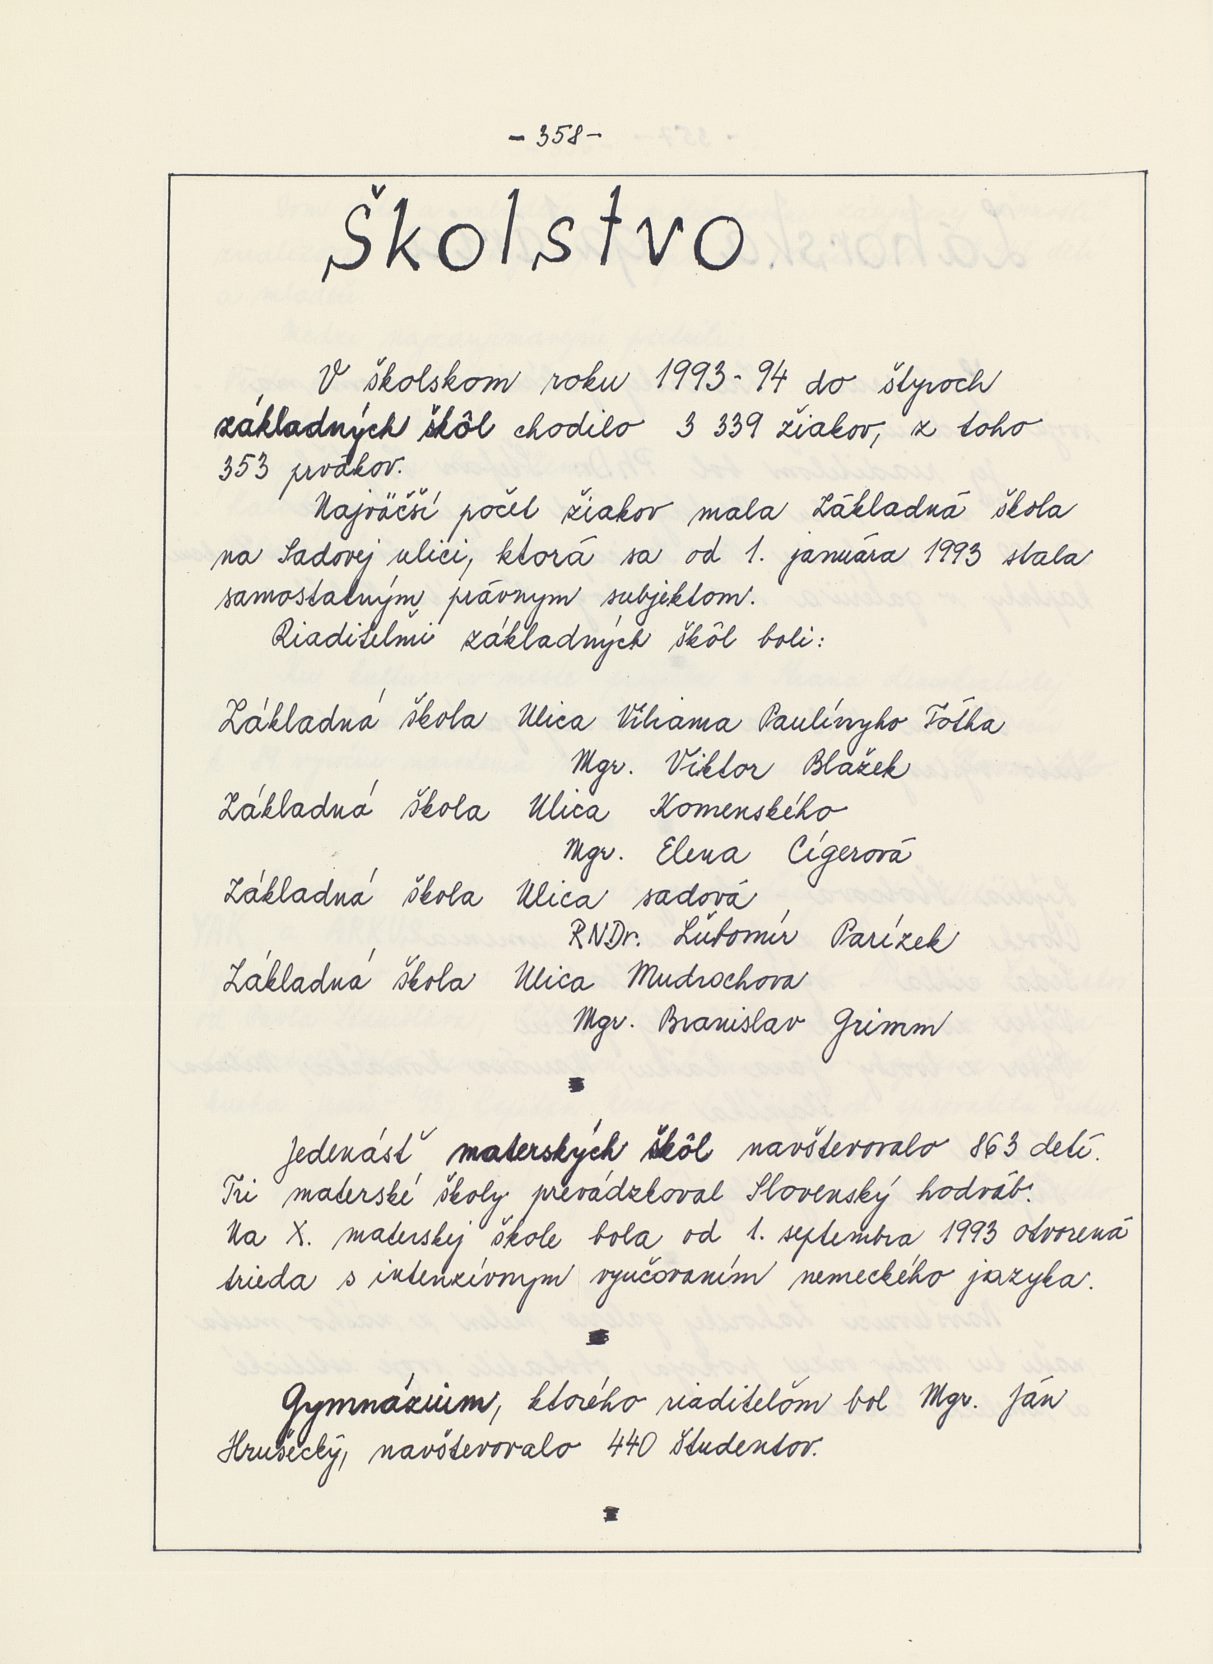 - 358 -
Školstvo
V školskom roku 1993-94 do štyroch
základných škôl chodilo 3 339 žiakov, z toho
353 prvákov.
Najväčší počet žiakov mala Základná škola
na Sadovej ulici, ktorá sa od 1. januára 1993 stala
samostatným právnym subjektom.
Riaditeľmi základných škôl boli:
Základná škola Ulica Viliama Paulínyho Tótha
Mgr. Viktor Blažek
Základná škola Ulica Komenského
Mgr. Elena Cígerová
Základná škola Ulica sadová
RNDr. Ľubomír Parízek
Základná škola Ulica Mudrochova
Mgr. Branislav Grimm
Jedenásť materských škôl navštevovalo 863 detí.
Tri materské školy prevádzkoval Slovenský hodváb.
Na X. materskej škole bola od 1. septembra 1993 otvorená
trieda s intenzívnym vyučovaním nemeckého jazyka.
Gymnázium, ktorého riaditeľom bol Mgr. Ján
Hrušecký, navštevovalo 440 študentov.